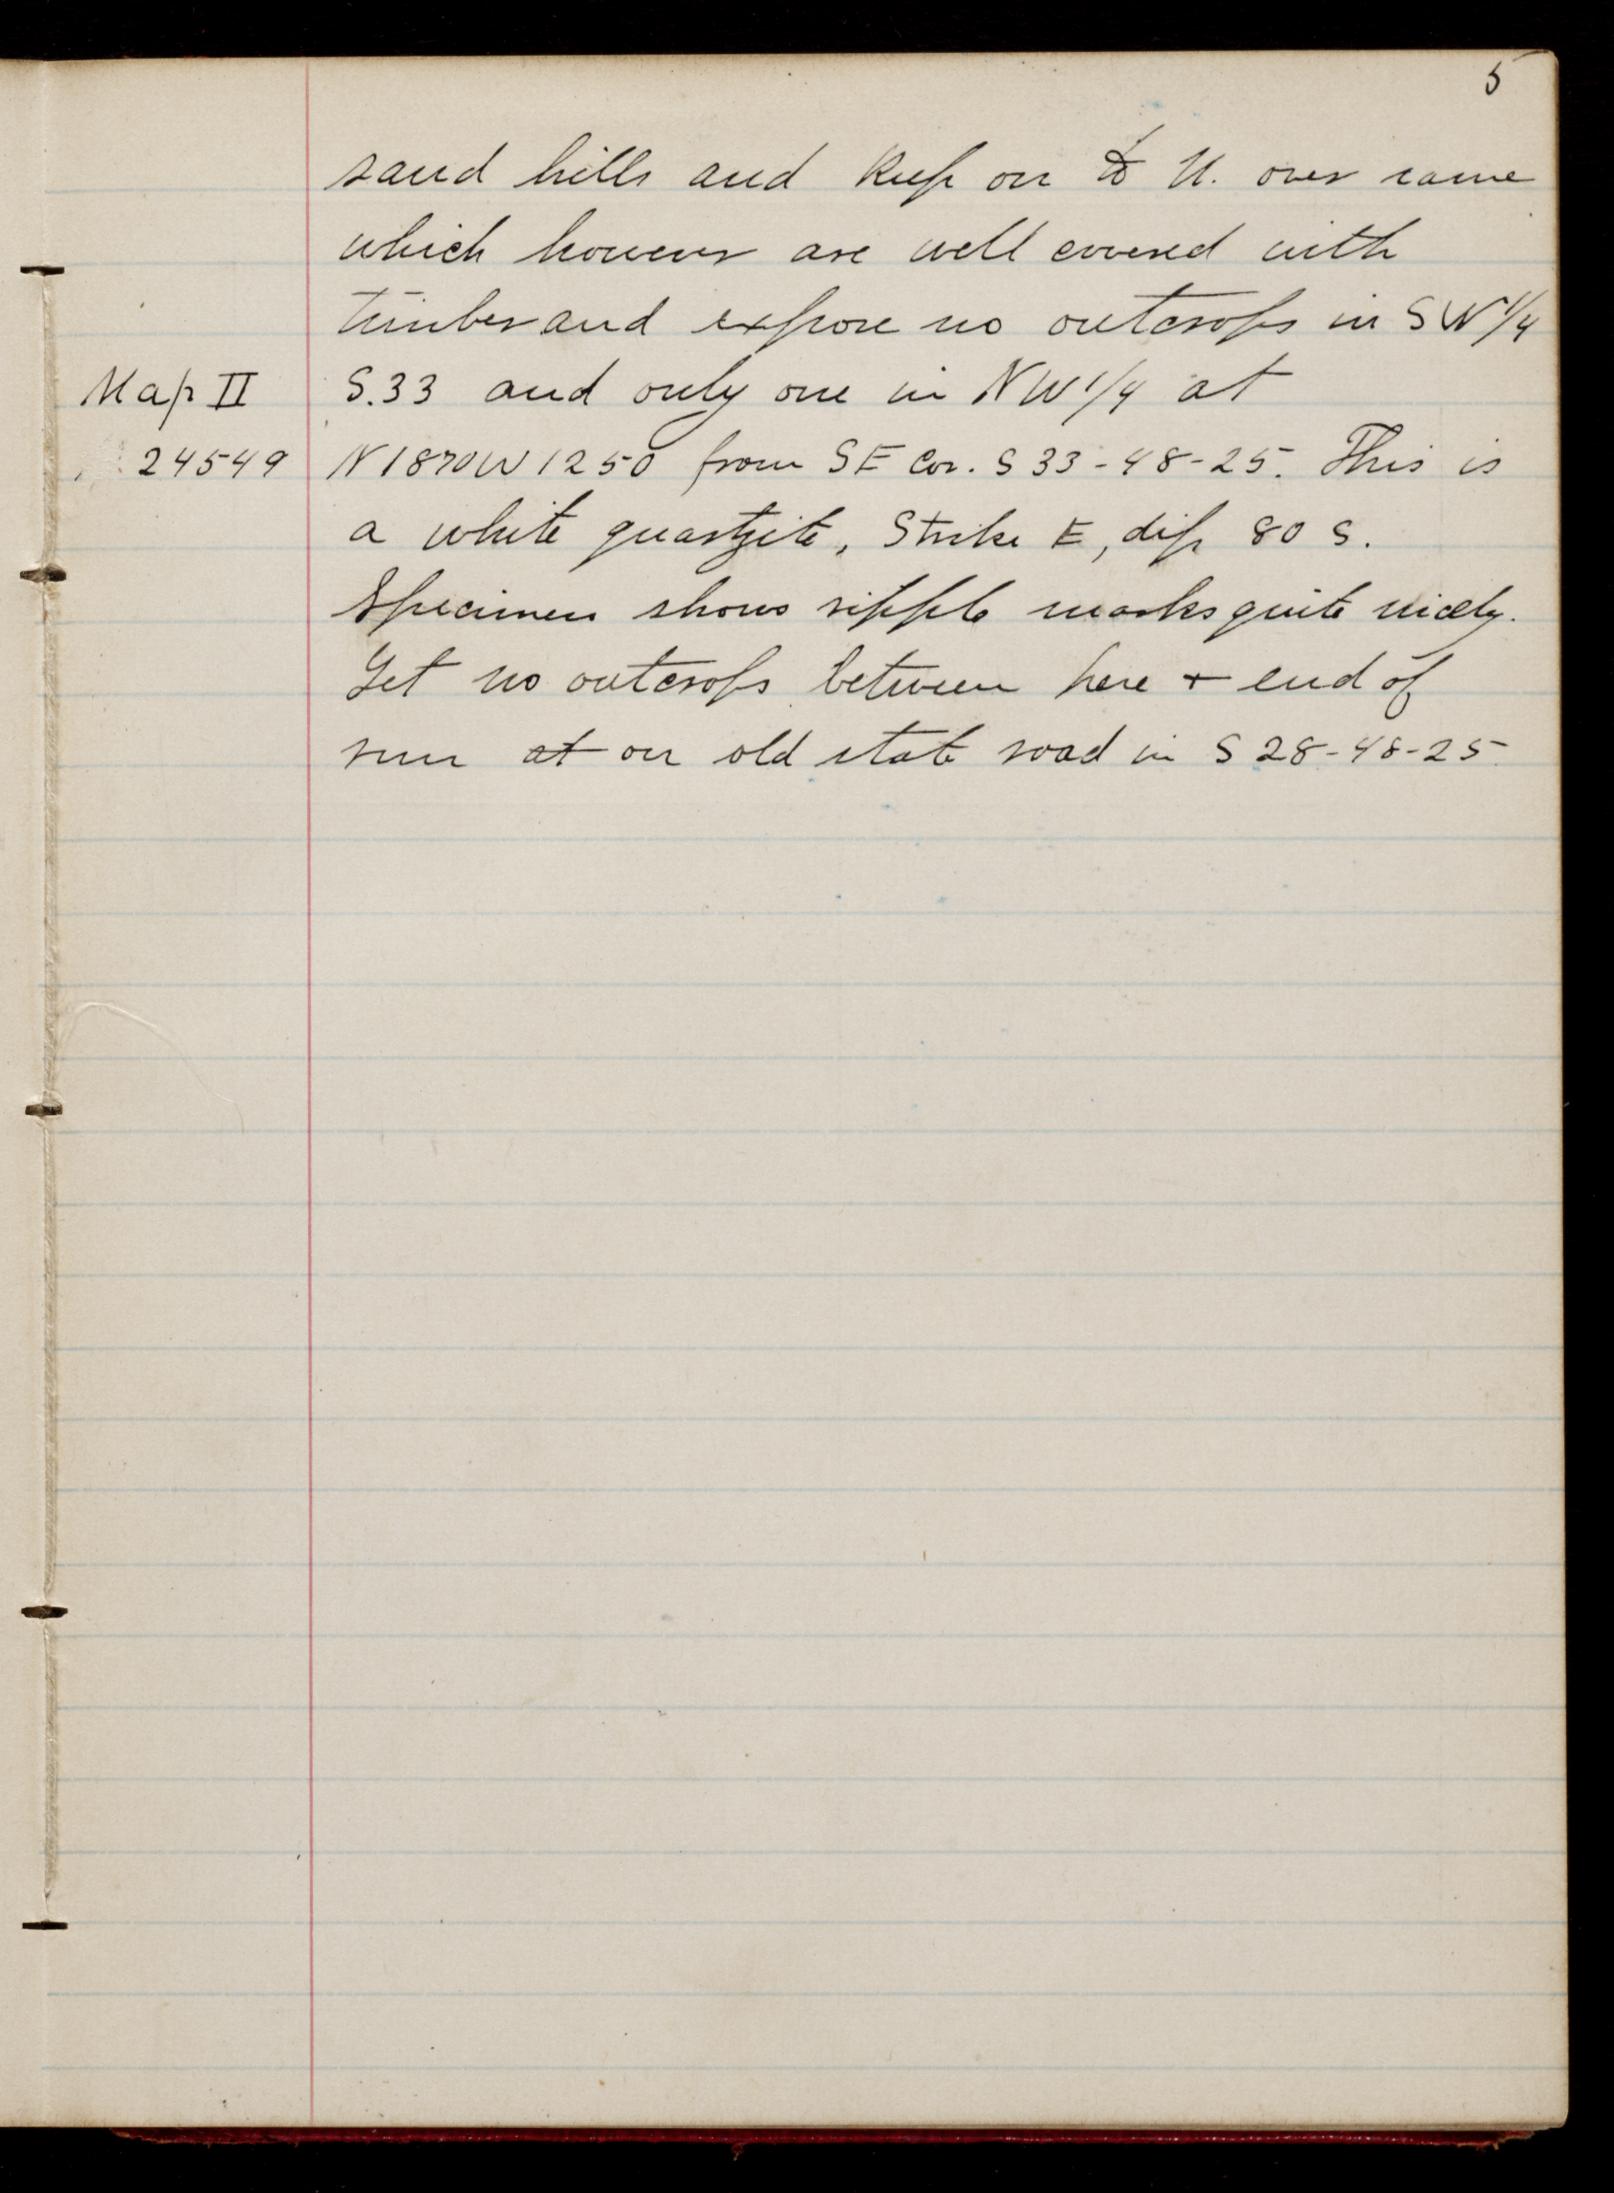 5
sand hills and keep on to N. over same
which however are well covered with
timber and expose no outcrops in SW 1/4
Map II S.33 and only one in NW 1/4 at
24549 N 1870 W 1250 from SE Cor. S 33-48-25. This is
a white quartzite, Strike E, dip 80 S.
Specimen shows ripple marks quite nicely.
Get no outcrops between here + end of
run at on old state road in S 28-48-25